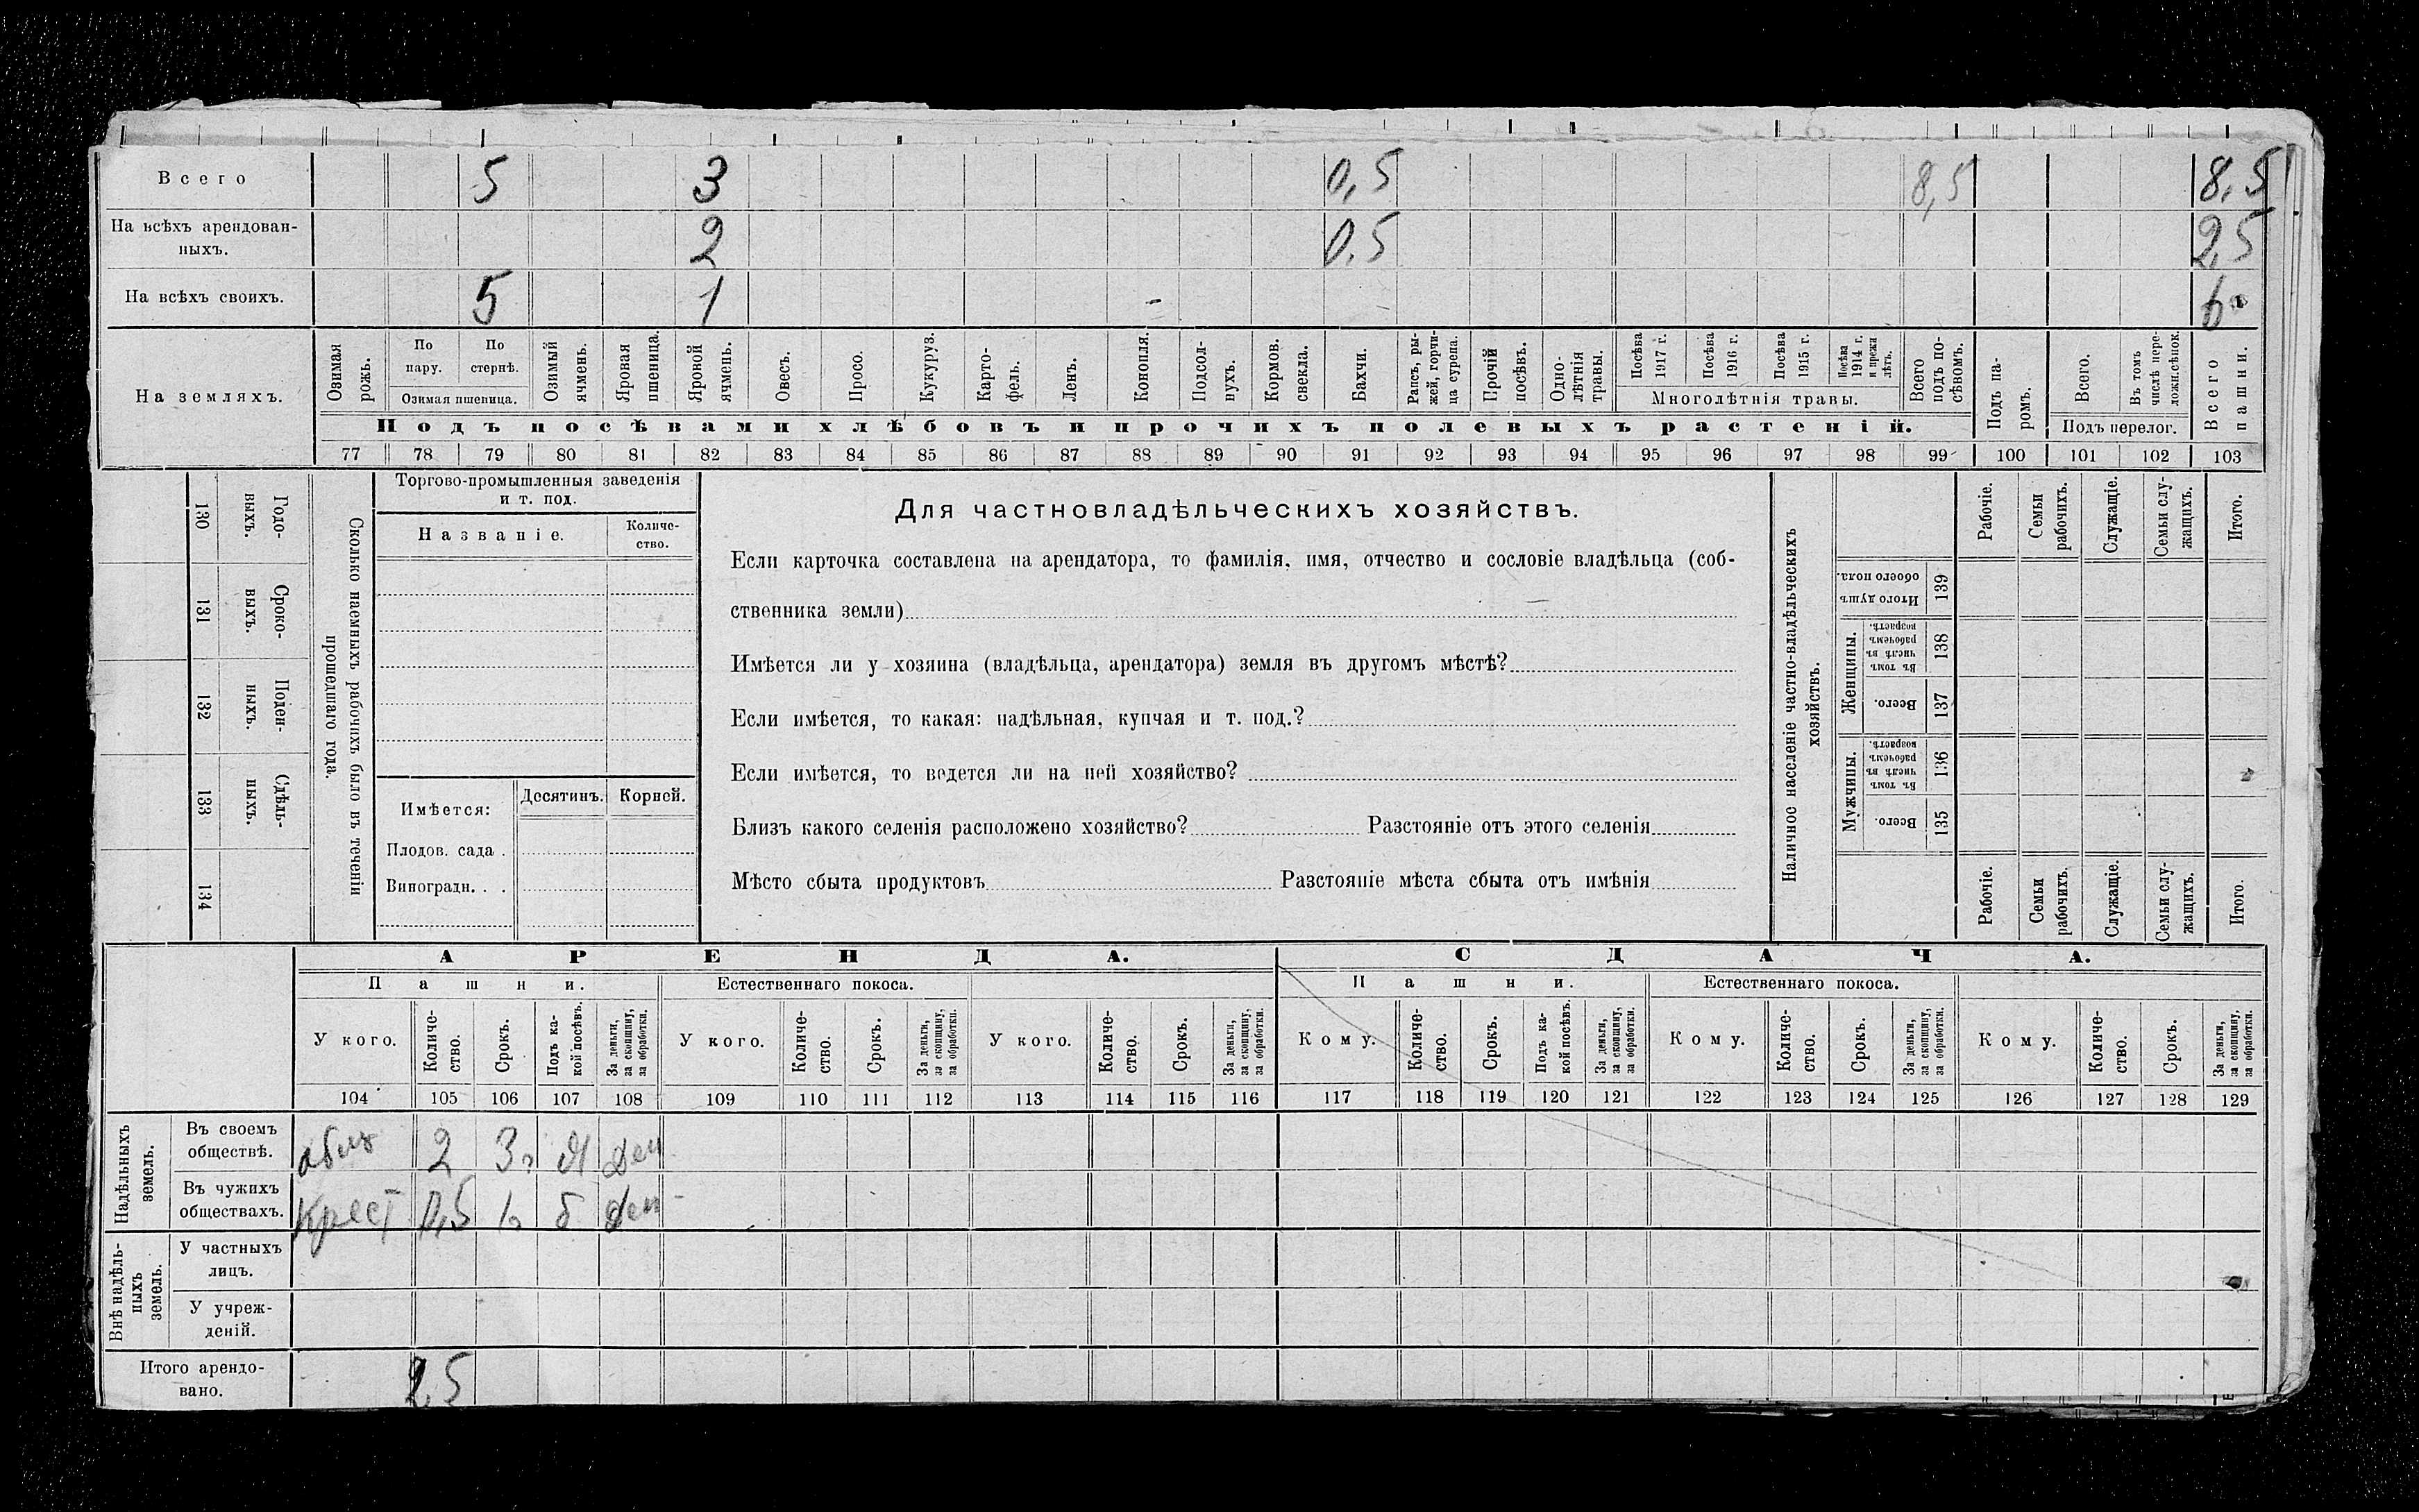 Всего 5 3 0,5 8,5 8,5
На всѣхъ арендован-
ныхъ. 2 0.5 2,5
На всѣхъ своихъ. 5 1 6
На земляхъ.
Озимая рожь.
По пару.
По стернѣ.
Озимая пшеница.
Озимый ячмень.
Яровая пшеница.
Яровой ячмень.
Овесъ.
Просо.
Кукуруз.
Карто-
фель.
Ленъ.
Конопля.
Подсол-
нухъ.
Кормов.
свекла.
Бахчи.
Рапсъ, ры-
жей, горчи-
ца сурепа.
Прочій
посѣвъ.
Одно-
лѣтнія
травы.
Посѣва
1917 г.
Посѣва
1916 г.
Посѣва
1915 г.
Посѣва
1914 г.
и прежн
лѣтъ.
Многолѣтнія травы.
Всего
подъ по-
сѣвомъ.
Подъ па-
ромъ.
Всего.
Въ томъ
числѣ пере-
ложн.сѣнок.
Подъ перелог.
Всего
пашни.
Подъ посѣвами хлѣбовъ и прочихъ полевыхъ растеній.
77 78 79 80 81 82 83 84 85 86 87 88 89 90 91 92 93 94 95 96 97 98 99 100 101 102 103
Сколько наемныхъ рабочихъ было въ теченіи
прошедшаго года.
Годо-
выхъ.
130
Сроко-
выхъ.
131
Поден-
ныхъ.
132
Сдѣль-
ныхъ.
133
134
Торгово-промышленныя заведенія
и т. под.
Названіе.
Количе-
ство.
Имѣется:
Десятинъ.
Корней.
Плодов. сада .
Виноградн. . .
Для частновладѣльческихъ хозяйствъ.
Если карточка составлена на арендатора, то фамилія, имя, отчество и сословіе владѣльца (соб-
ственника земли)
Имѣется ли у хозяина (владѣльца, арендатора) земля въ другомъ мѣстѣ?
Если имѣется, то какая: надѣльная, купчая и т. под.?
Если имѣется, то ведется ли на ней хозяйство?
Близъ какого селенія расположено хозяйство? Разстояніе отъ этого селенія
Мѣсто сбыта продуктовъ Разстояніе мѣста сбыта отъ имѣнія
Наличное населеніе частно-владѣльческихъ
хозяйствъ.
Рабочіе.
Семьи
рабочихъ.
Служащіе.
Семьи слу-
жащихъ.
Итого.
Итого душъ
обоего пола.
139
Женщины.
Въ томъ
числѣ въ
рабочемъ
возрастѣ.
138
Всего.
137
Мужчины.
Въ томъ
числѣ въ
рабочемъ
возрастѣ.
136
Всего.
135
Рабочіе.
Семьи
рабочихъ.
Служащіе.
Семьи слу-
жащихъ.
Итого.
АРЕНДА. СДАЧА.
Пашни. Естественнаго покоса. Пашни. Естественнаго покоса.
У кого.
Количе-
ство.
Срокъ.
Подъ ка-
кой посѣвъ.
За деньги,
за скопщину,
за обработки.
У кого.
Количе-
ство.
Срокъ.
За деньги,
за скопщину,
за обработки.
У кого.
Количе-
ство.
Срокъ.
За деньги,
за скопщину,
за обработки.
Кому.
Количе-
ство.
Срокъ.
Подъ ка-
кой посѣвъ.
За деньги,
за скопщину,
за обработки.
Кому.
Количе-
ство.
Срокъ.
За деньги,
за скопщину,
за обработки.
Кому.
Количе-
ство.
Срокъ.
За деньги,
за скопщину,
за обработки.
104 105 106 107 108 109 110 111 112 113 114 115 116 117 118 119 120 121 122 123 124 125 126 127 128 129
Надѣльныхъ
земель.
Въ своемъ
обществѣ. 2 3 Я Ден
Въ чужихъ
обществахъ. Крест 0,5 1 б Ден
Внѣ надѣль-
ныхъ
земель.
У частныхъ
лицъ.
У учреж-
деній.
Итого арендо-
вано. 2,5